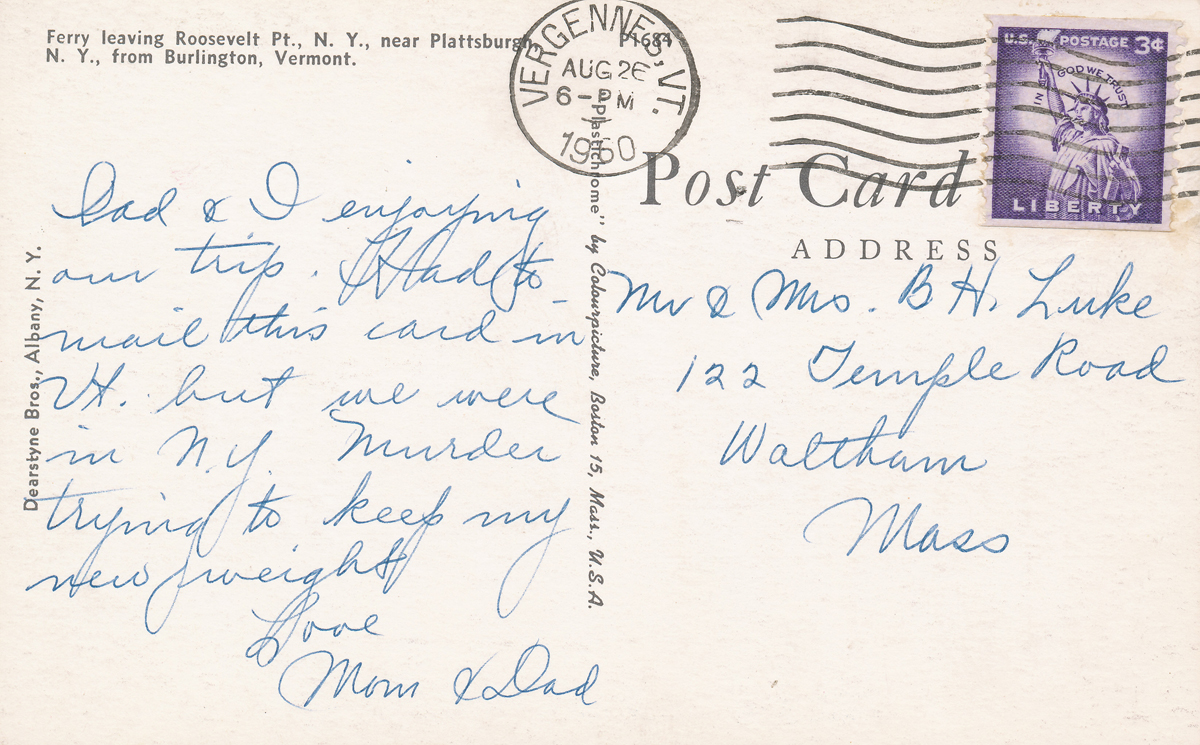 Ferry leaving Roosevelt Pt., N. Y., near Plattsburgh
N. Y., from Burlington, Vermont.
P1684
VERGENNES, VT.
AUG 26
6-PM
1960
U.S. POSTAGE 3¢
IN GOD WE TRUST
LIBERTY
Post Card
ADDRESS
Dad & I enjoying
our trip. Had to
mail this card in
Vt. but we were
in N.Y. Murder
trying to keep my
new weight
Love
Mom & Dad
Mr & Mrs. B H. Luke
122 Temple Road
Waltham
Mass
Dearstyne Bros., Albany, N. Y.
"Plastichrome" by Colourpicture, Boston 15, Mass., U.S.A.